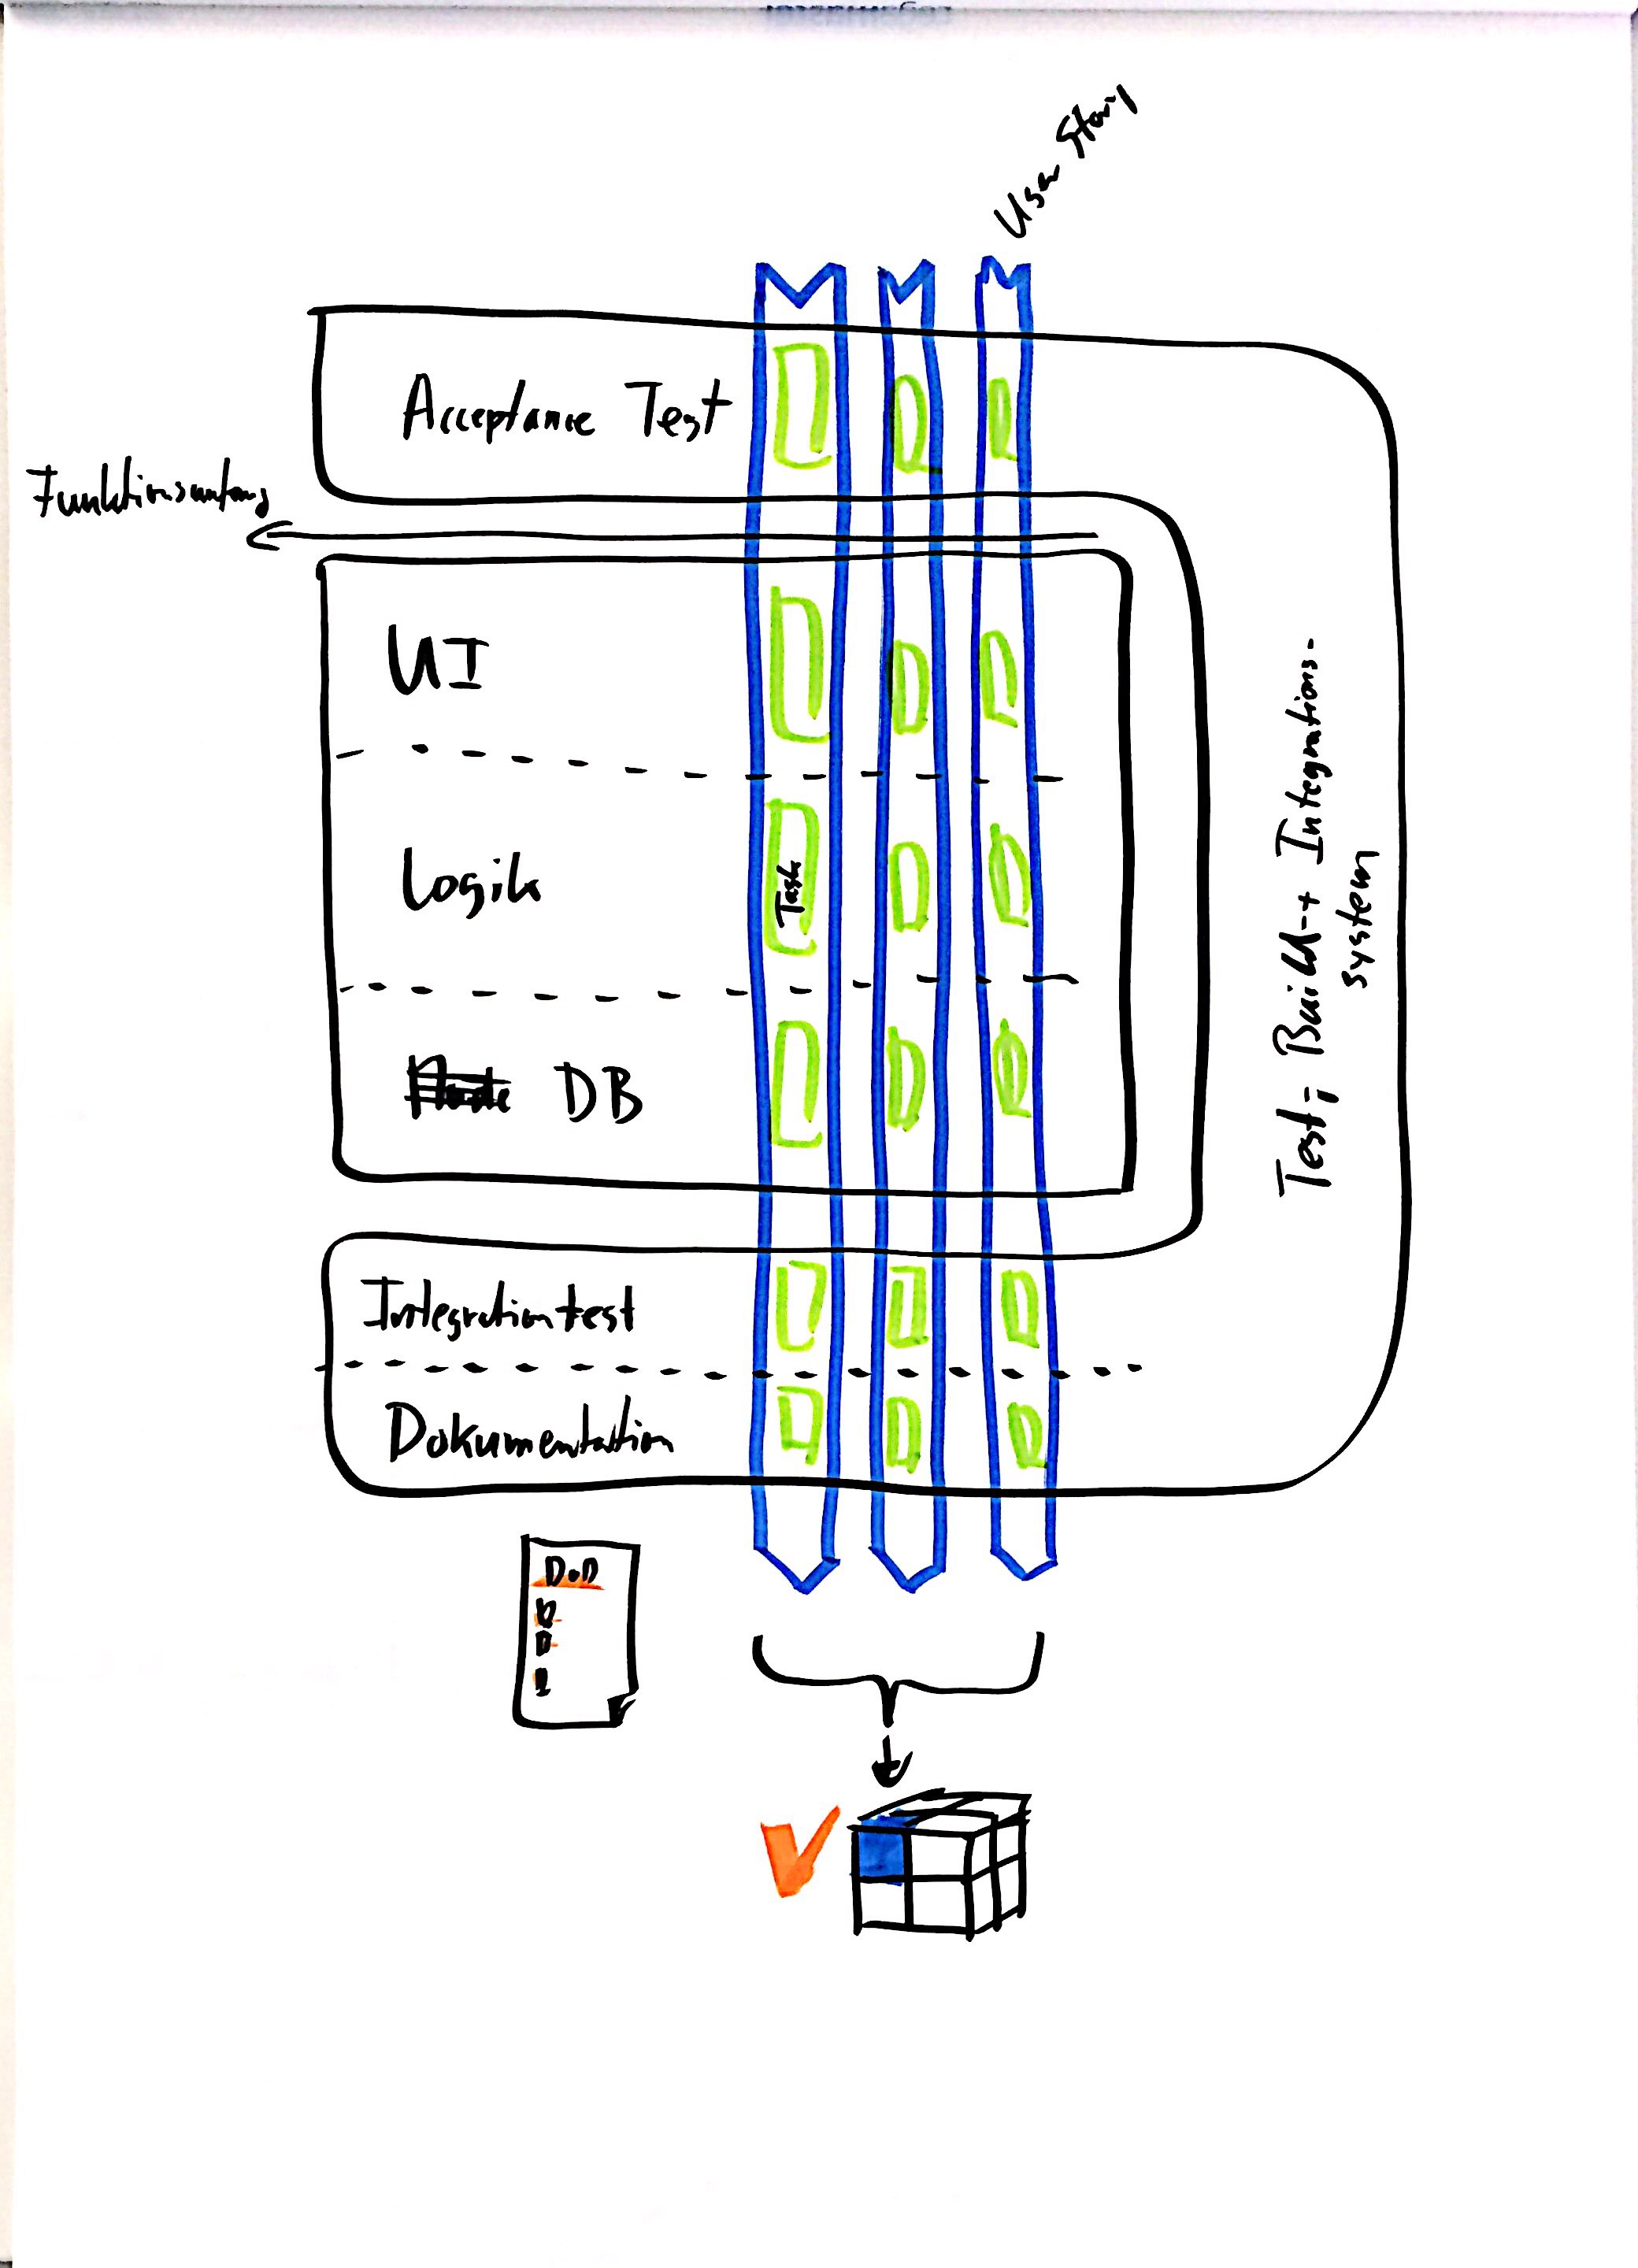 User Story
Acceptance Test
Funktionsumfang
UI
Logik
Task
DB
Test-, Build- + Integrations-
system
Integrationtest
Dokumentation
DoD